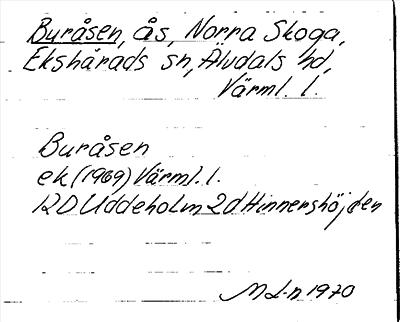 Buråsen, ås, Norra Skoga,
Ekshärads sn, Älvdals hd,
Värml. l.
Buråsen
ek (1969) Värml. l.
12D Uddeholm 2d Hinnershöjden
M L-n 1970